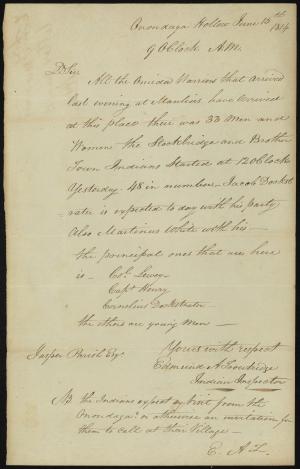 Onondaga Hollow June 15th 1814
9 OClock A.M.
Dr Sir
All the Oneida Warriors that arrived
last evening at Manlius have arrived
at this place their was 33 men and
Women the Stockbridge and Brother
Town Indians Started at 12 OClock
Yesterday 48 in number Jacob Doxst
rater is expected to day with his party
Also Martinus White with his —
the principal ones that are here
is — Col. Lewey
Capt Henry
Cornelius Doxstrater
the others are young men —
Yours with respect
Jasper Parish Esqr.
Edmund A
Indian Inspector
NB the Indians expect a visit from the
Onondaga's or otherwise an invitation for
them to call at their Village —
E. A. T.